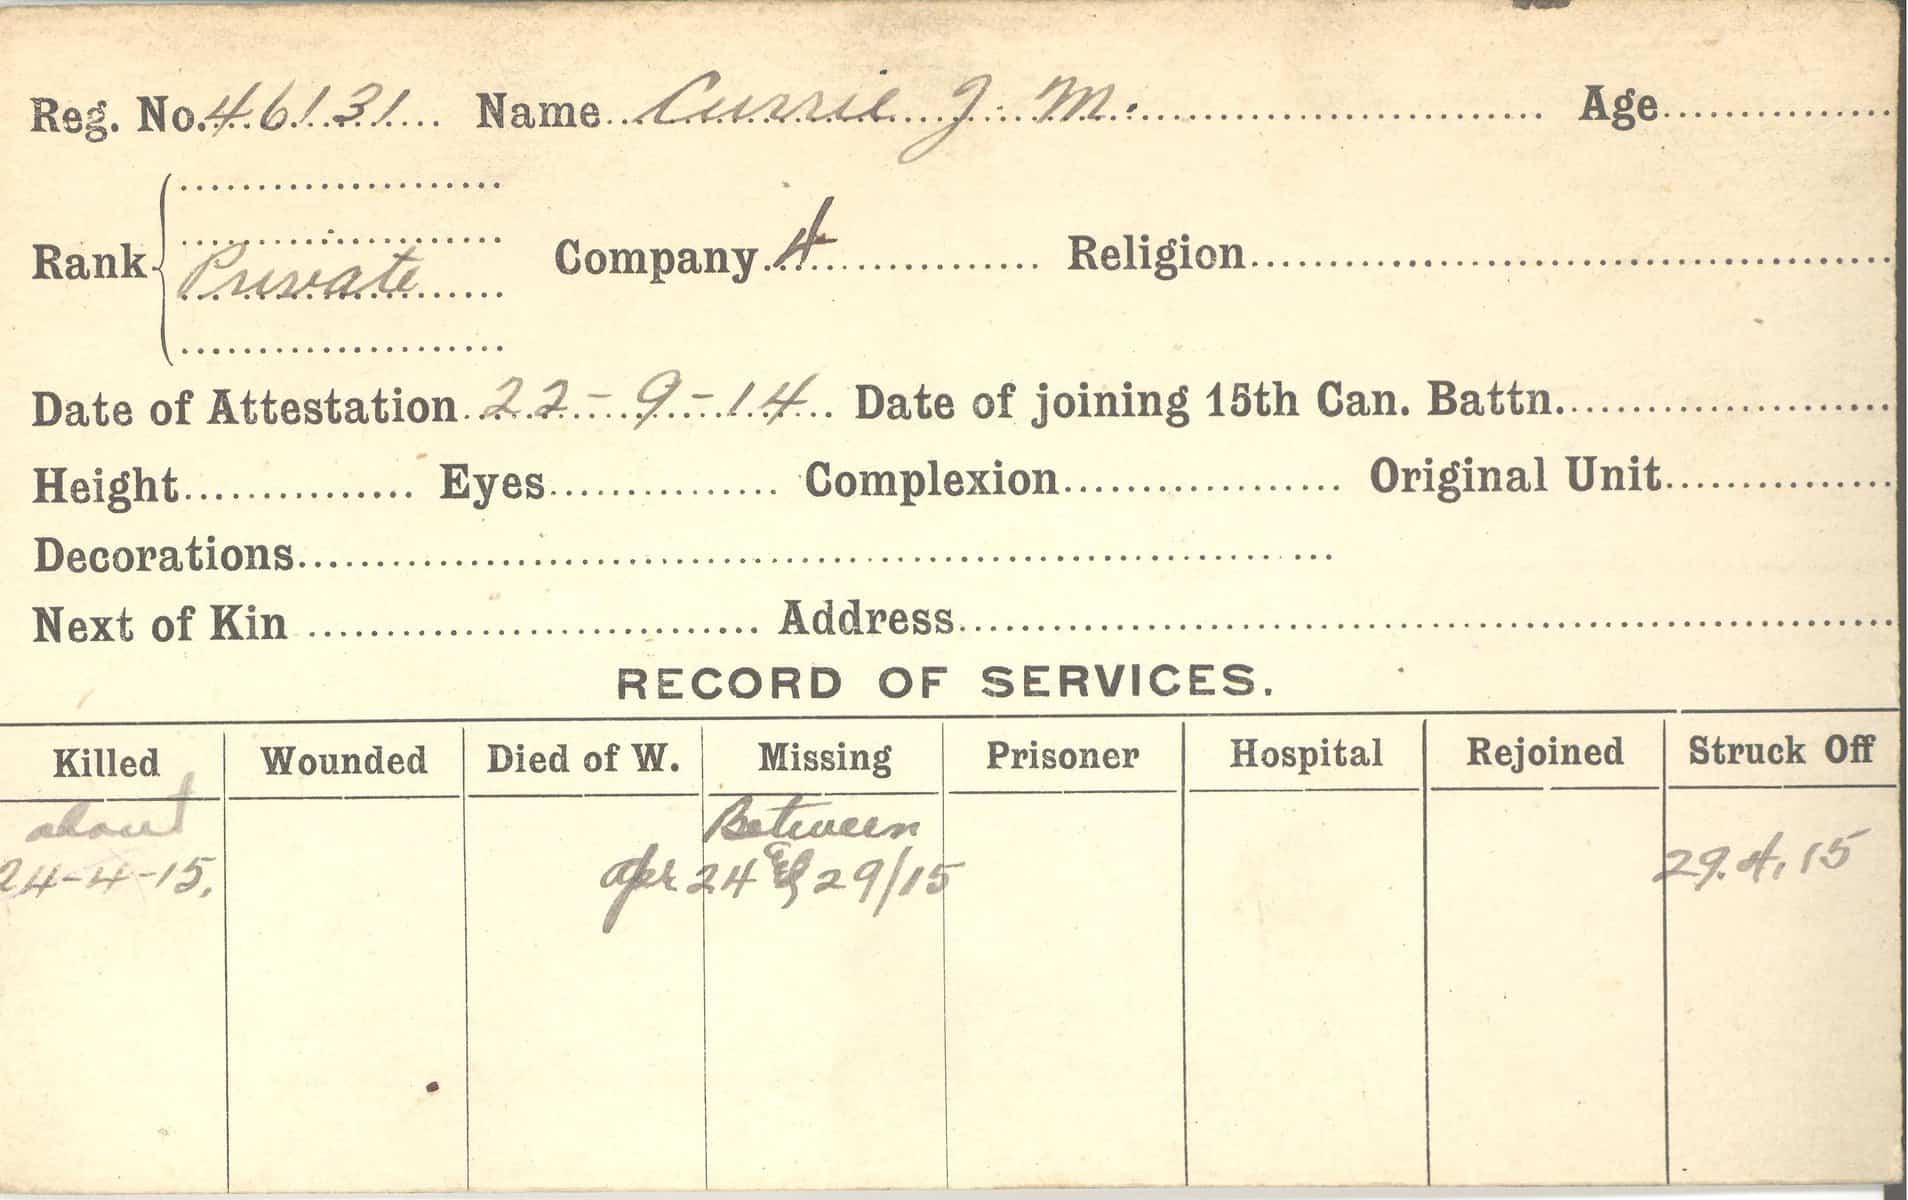 Reg. No. 46131 Name Currie J. M. Age
Rank Private Company 4 Religion
Date of Attestation 22-9-14 Date of joining 15th Can. Battn.
Height Eyes Complexion Original Unit
Decorations
Next of Kin Address
RECORD OF SERVICES.
Killed Wounded Died of W. Missing Prisoner Hospital Rejoined Struck Off
about Between
24-4-15. Apr 24 & 29/15 29.4.15